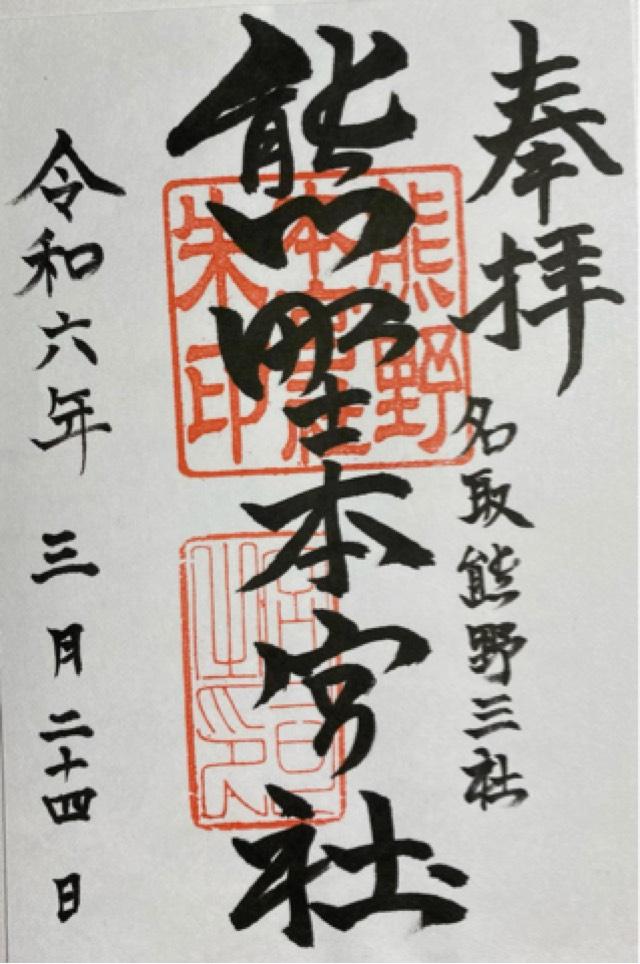 奉拝
名取熊野三社
熊野本宮社
熊野
本宮社
朱印
令和六年 三月二十四日